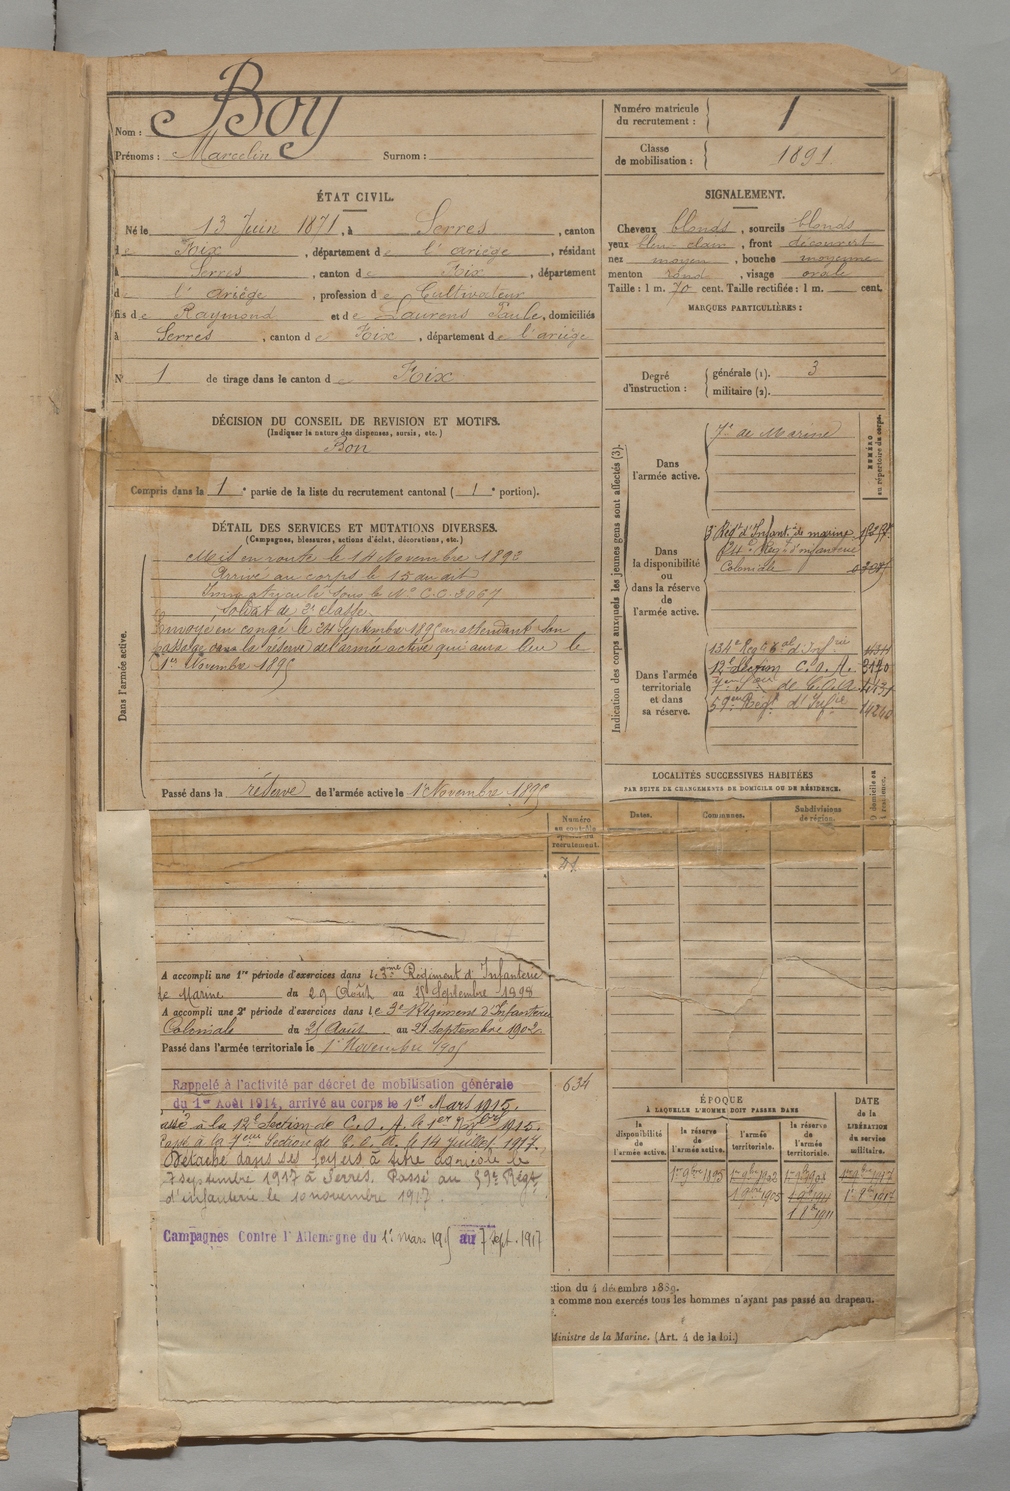 Nom : Boy
Prénoms : Marcelin Surnom :
Numéro matricule du recrutement : 1
Classe de mobilisation : 1891
ÉTAT CIVIL.
Né le 13 Juin 1871, à Serres, canton
de Foix, département de l'ariège, résidant
à Serres, canton de Foix, département
de l'ariège, profession de Cultivateur
fils de Raymond et de Laurens Paule, domiciliés
à Serres, canton de Foix, département de l'ariège
N° 1 de tirage dans le canton de Foix
SIGNALEMENT.
Cheveux blonds, sourcils blonds
yeux bleu clair, front découvert
nez moyen, bouche moyenne
menton rond, visage ovale
Taille : 1 m. 70 cent. Taille rectifiée : 1 m. cent.
MARQUES PARTICULIÈRES :
Degré d'instruction : générale (1). 3
militaire (2).
DÉCISION DU CONSEIL DE REVISION ET MOTIFS.
(Indiquer la nature des dispenses, sursis, etc.)
Bon
Compris dans la 1e partie de la liste du recrutement cantonal (1e portion).
DÉTAIL DES SERVICES ET MUTATIONS DIVERSES.
(Campagnes, blessures, actions d'éclat, décorations, etc.)
Dans l'armée active.
Mis en route le 14 Novembre 1892
Arrivé au corps le 15 du dit
Immatriculé sous le N° C.C. 3067
Soldat de 2e classe
Envoyé en congé le 24 Septembre 1895 en attendant son
passage dans la réserve de l'armée active qui aura lieu le
1er Novembre 1895
Passé dans la réserve de l'armée active le 1er Novembre 1895
Indication des corps auxquels les jeunes gens sont affectés (3).
NUMÉRO au répertoire du corps.
Dans l'armée active.
7e de Marine
Dans la disponibilité ou dans la réserve de l'armée active.
3e Régt d'Infant. de marine
24e Régt d'infanterie
Coloniale
Dans l'armée territoriale et dans sa réserve.
134e Régt
12e Section C.O.A. 3170
7eme de C.O.A.
59eme Régt d'Infie 14240
LOCALITÉS SUCCESSIVES HABITÉES
PAR SUITE DE CHANGEMENTS DE DOMICILE OU DE RÉSIDENCE.
Dates. Communes. Subdivisions de région.
Numéro au contrôle
recrutement.
A accompli une 1re période d'exercices dans le 3eme Régiment d'Infanterie
de Marine du 29 Août au 25 Septembre 1898
A accompli une 2e période d'exercices dans le 3e Régiment d'Infanterie
Coloniale du 25 Août au 21 Septembre 1902
Passé dans l'armée territoriale le 1er Novembre 1905
Rappelé à l'activité par décret de mobilisation générale
du 1er Août 1914, arrivé au corps le 1er Mars 1915.
Passé à la 12e Section de C.O.A. le 1er 1915.
Passé à la 7eme Section de C.O.A. le 14 juillet 1917.
Détaché dans ses foyers à titre agricole le
7 septembre 1917 à Serres. Passé au 59e Régt
d'infanterie le 10 novembre 1917.
Campagnes Contre l'Allemagne du 1er mars 1915 au 7 Sept. 1917
634
ÉPOQUE
À LAQUELLE L'HOMME DOIT PASSER DANS
la disponibilité de l'armée active.
la réserve de l'armée active.
l'armée territoriale.
la réserve de l'armée territoriale.
DATE de la LIBÉRATION du service militaire.
1er 9bre 1895
1er 9bre 1905
1er 9bre 1917
ction du 4 décembre 1889.
comme non exercés tous les hommes n'ayant pas passé au drapeau.
Ministre de la Marine. (Art. 4 de la loi.)